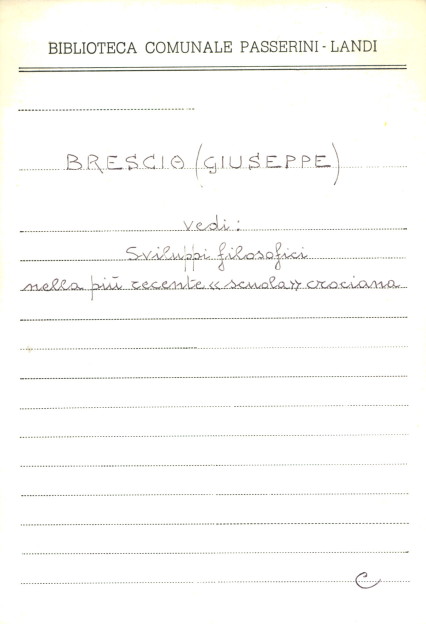 BIBLIOTECA COMUNALE PASSERINI - LANDI
BRESCIA (GIUSEPPE)
vedi:
Sviluppi filosofici
nella più recente « scuola » crociana
C